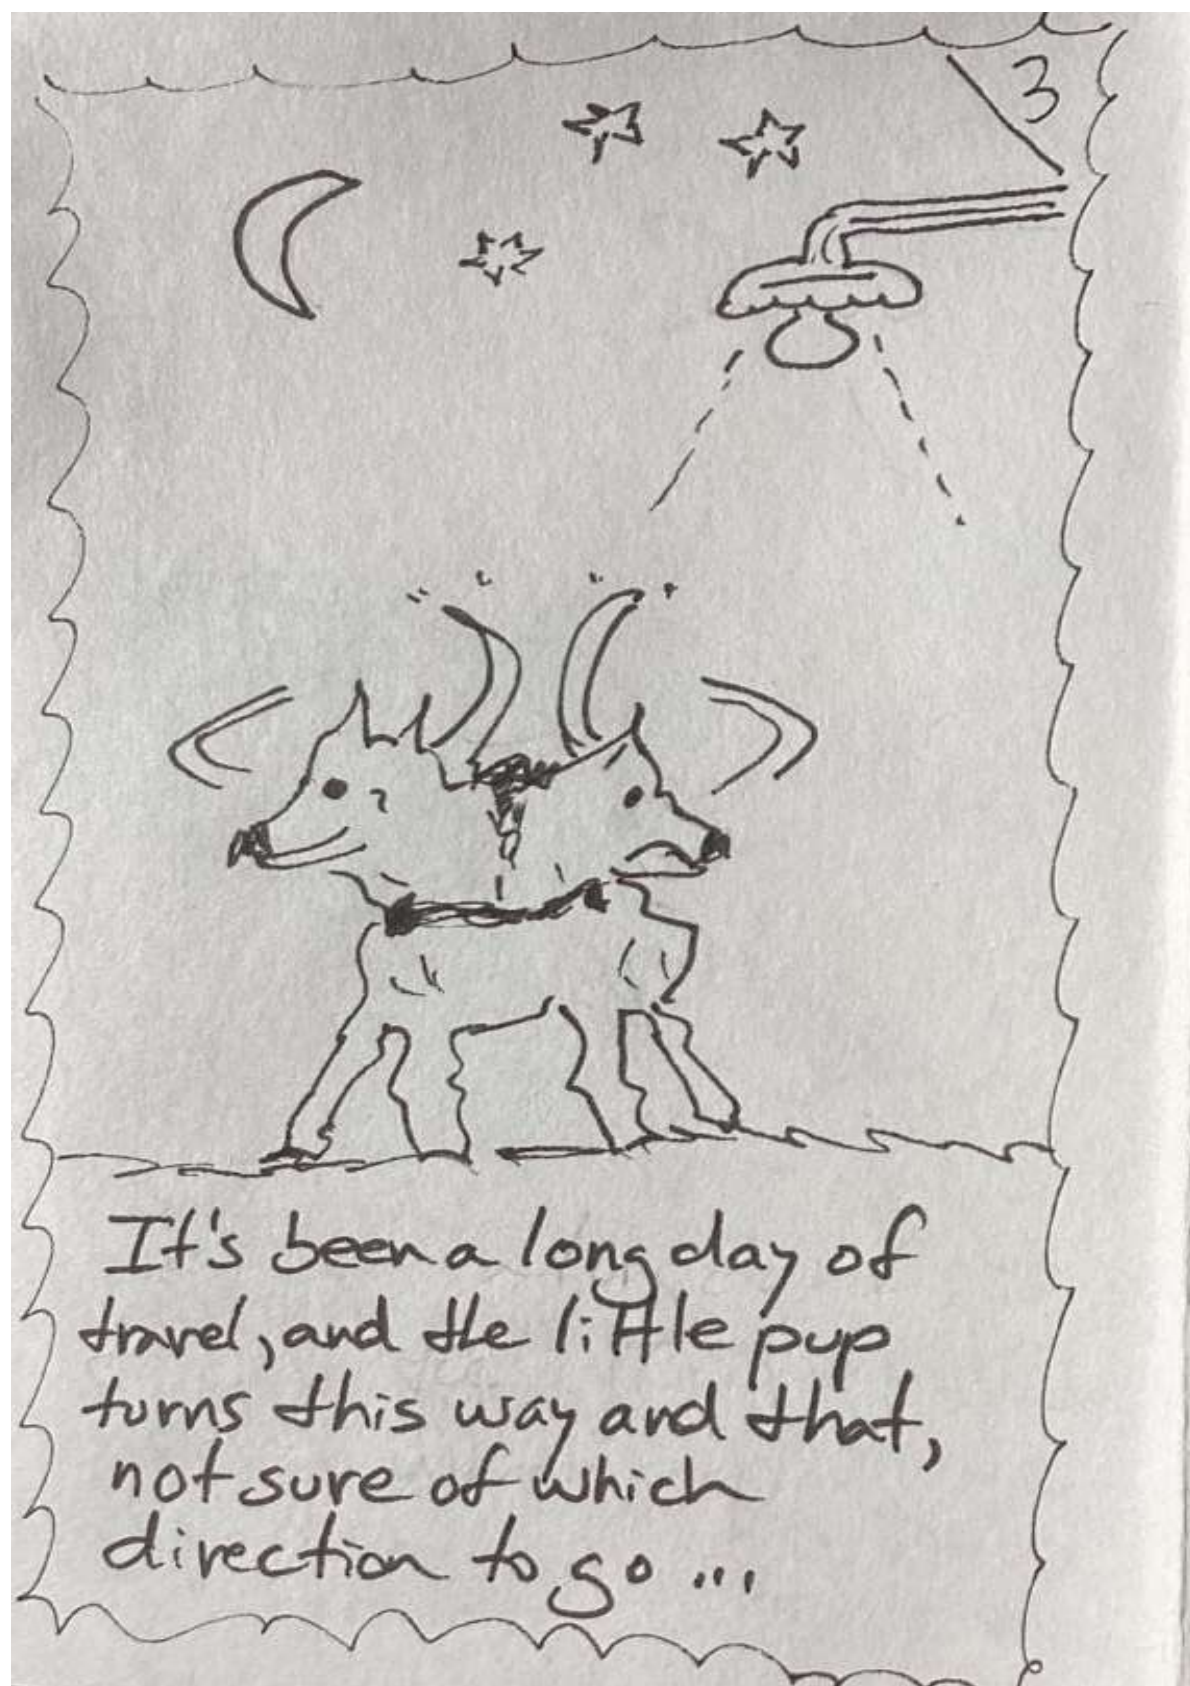 3
It's been a long day of
travel, and the little pup
turns this way and that,
not sure of which
direction to go...